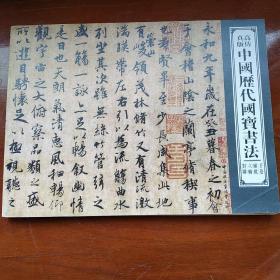 高仿真版
中國歷代國寶書法
永和九年歲在癸丑暮春之初會
于會稽山陰之蘭亭脩稧事
也群賢畢至少長咸集此地
有崇山峻領茂林脩竹又有清流激
湍映帶左右引以為流觴曲水
列坐其次雖無絲竹管弦之
盛一觴一詠亦足以暢敘幽情
是日也天朗氣清惠風和暢仰
觀宇宙之大俯察品類之盛
所以遊目騁懷足以極視聽之